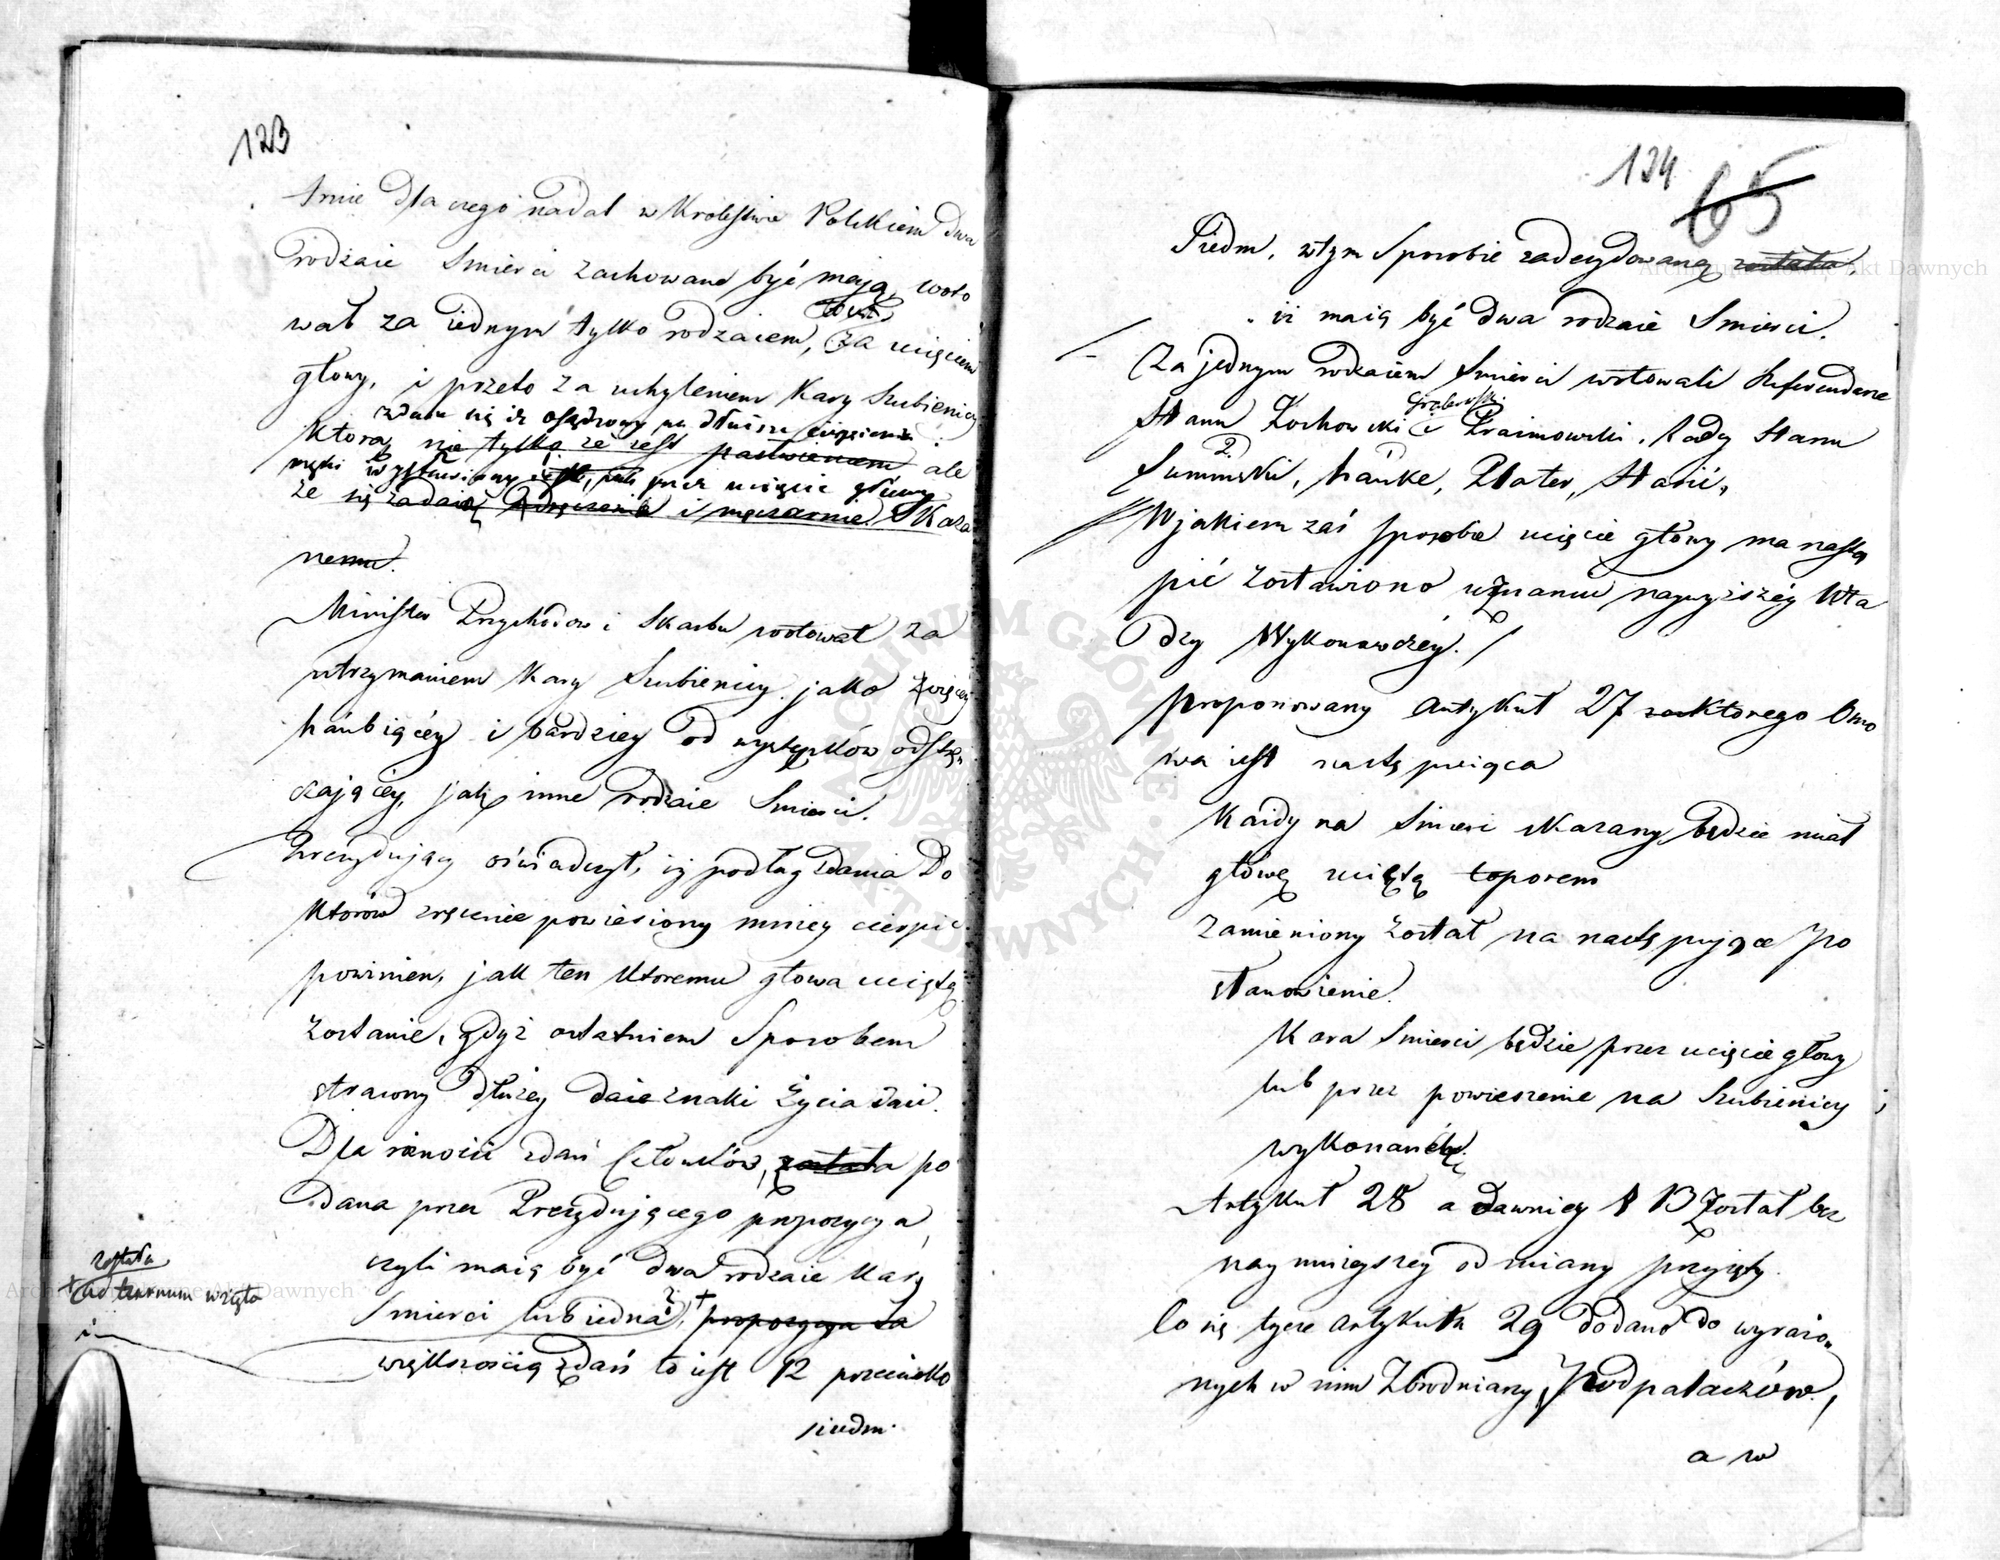 123
dla czego nadal w Krolestwie Polskiem dwa
rodzaie Smierci zachowane być mają, woto
wał za iednym tylko rodzaiem, za ucięciem
głowy, i przeto za uchyleniem Kary Szubienicy
zdaie się iż osądzony na dłuższe cierpienia
Ktora nie tylko że iest pastwieniem ale
męki wystawiony iest, przez ucięcie głowy
że się zadaią i męczarnie Skaza
nemu.
Minister Przychodow i Skarbu wotował za
utrzymaniem Kary Szubienicy jako więcey
hańbiącéy i bardziey od występków odstrę
czającéy, jak inne rodzaie Smierci.
Prezyduiący oświadczył, iż podług zdania Do
Ktorów zręcznie powieszony mniey cierpieć
powinien, jak ten Ktoremu głowa uciętą
zostanie, gdyż ostatniem Sposobem
stracony dłużey daie znaki Życia
Dla różności zdań Członków, została po
dana przez Prezydującego propozycya,
czyli maią być dwa rodzaie Kary
Smierci lub iedna?, + propozycya ta
została
+ ad turnum wzięta
i
większością zdań to iest 12 przeciwko
siedm.
124
65
Siedm, w tym Sposobie zadecydowaną została
iż maią być dwa rodzaie Smierci.
Za jednym rodzaiem Smierci wotowali Referendarze
Grabowski
Stanu Zochowski i Praimowski, Rady Stanu
Suminski, Hauke, Plater, Stasic,
W jakiem zaś Sposobie ucięcie głowy ma nastą
pić zostawiono uznaniu naywyższéy Wła
dzy Wykonawczéy.
proponowany Artykuł 27 Ktorego Osno
wa iest następuiąca
Każdy na Smierć skazany będzie miał
głowę uciętą toporem
zamieniony został na następujące po
stanowienie.
Kara Smierci będzie przez ucięcie głowy
lub przez powieszenie na Szubienicy
wykonaną
Artykuł 28 a dawniey § 13 został bez
naymnieyszey odmiany przyięty.
Co się tycze Artykułu 29 dodano do wyrażo
nych w nim Zbrodniarzy, Podpalaczów,
a w